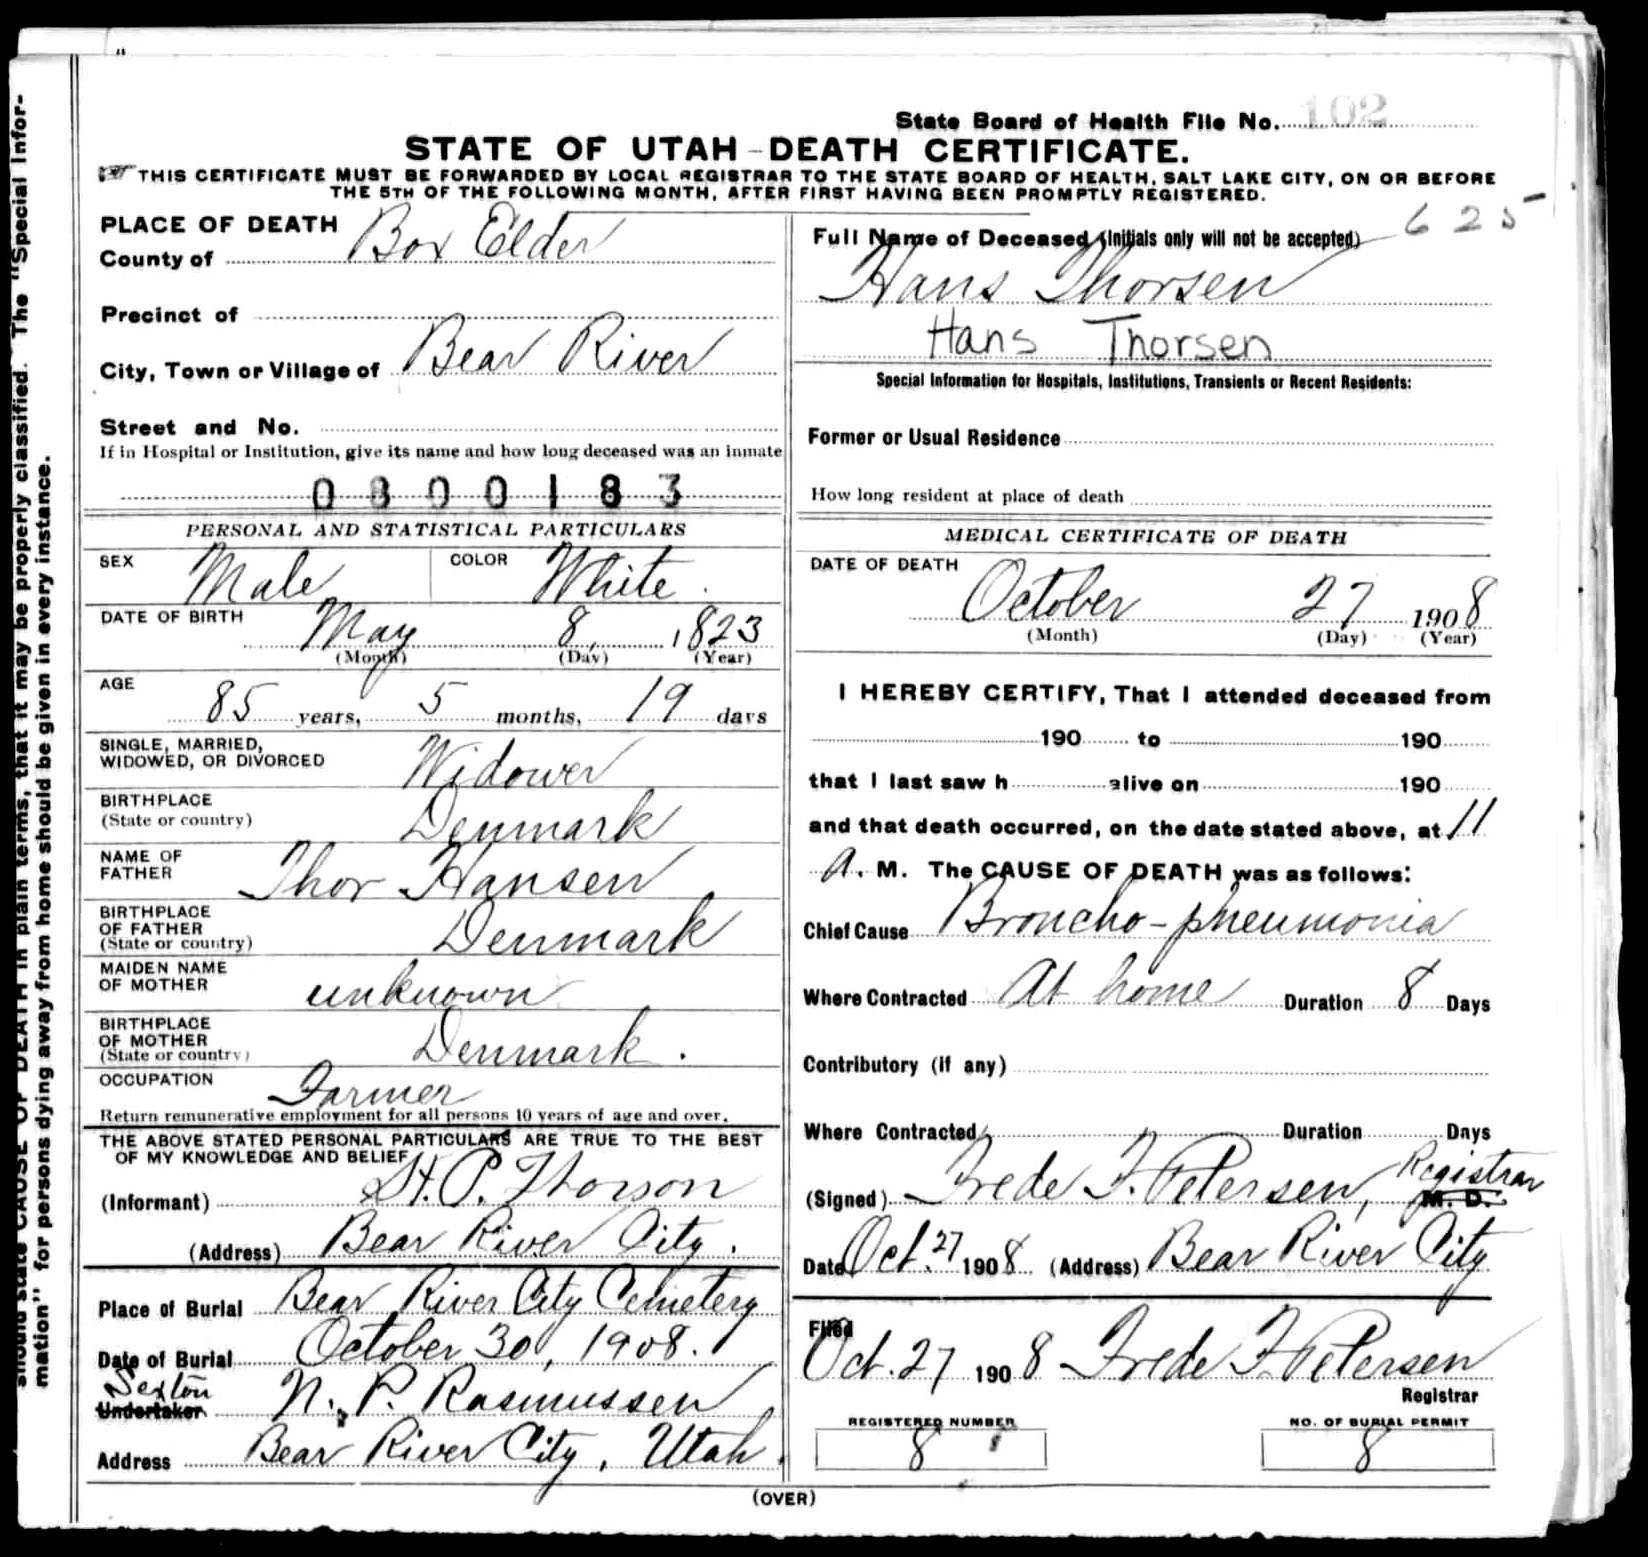 should state CAUSE OF DEATH in plain terms, that it may be properly classified. The "Special Infor-
mation" for persons dying away from home should be given in every instance.
State Board of Health File No. 102
STATE OF UTAH - DEATH CERTIFICATE.
THIS CERTIFICATE MUST BE FORWARDED BY LOCAL REGISTRAR TO THE STATE BOARD OF HEALTH, SALT LAKE CITY, ON OR BEFORE
THE 5TH OF THE FOLLOWING MONTH, AFTER FIRST HAVING BEEN PROMPTLY REGISTERED.
PLACE OF DEATH
County of Box Elder
Precinct of
City, Town or Village of Bear River
Street and No.
If in Hospital or Institution, give its name and how long deceased was an inmate
0800183
PERSONAL AND STATISTICAL PARTICULARS
SEX Male COLOR White.
DATE OF BIRTH May 8, 1823
(Month) (Day) (Year)
AGE 85 years, 5 months, 19 days
SINGLE, MARRIED,
WIDOWED, OR DIVORCED Widower
BIRTHPLACE
(State or country) Denmark
NAME OF
FATHER Thor Hansen
BIRTHPLACE
OF FATHER
(State or country) Denmark
MAIDEN NAME
OF MOTHER unknown
BIRTHPLACE
OF MOTHER
(State or country) Denmark.
OCCUPATION Farmer
Return remunerative employment for all persons 10 years of age and over.
THE ABOVE STATED PERSONAL PARTICULARS ARE TRUE TO THE BEST
OF MY KNOWLEDGE AND BELIEF
(Informant) H. P. Thorson
(Address) Bear River City.
Place of Burial Bear River City Cemetery
Date of Burial October 30, 1908.
Sexton
Undertaker N. P. Rasmussen
Address Bear River City, Utah.
625
Full Name of Deceased (Initials only will not be accepted)
Hans Thorsen
Hans Thorsen
Special Information for Hospitals, Institutions, Transients or Recent Residents:
Former or Usual Residence
How long resident at place of death
MEDICAL CERTIFICATE OF DEATH
DATE OF DEATH
October 27 1908
(Month) (Day) (Year)
I HEREBY CERTIFY, That I attended deceased from
190 to 190
that I last saw h alive on 190
and that death occurred, on the date stated above, at 11
A. M. The CAUSE OF DEATH was as follows:
Chief Cause Broncho-pneumonia
Where Contracted At home Duration 8 Days
Contributory (if any)
Where Contracted Duration Days
(Signed) Frede F. Petersen, Registrar M. D.
Date Oct. 27 1908 (Address) Bear River City
Filed
Oct. 27 1908 Frede F. Petersen
Registrar
REGISTERED NUMBER NO. OF BURIAL PERMIT
8 8
(OVER)